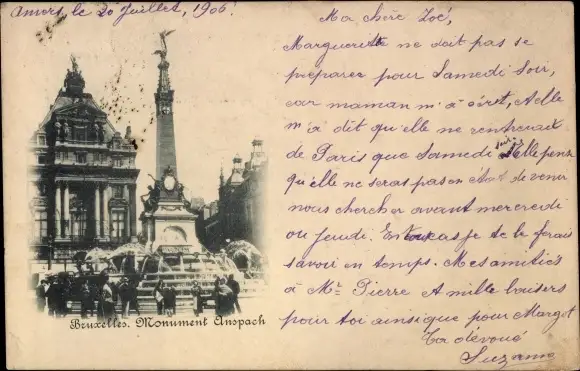 Anvers, le 20 Juillet, 1906.
Ma chère Zoé,
Marguerite ne doit pas se
préparer pour Samedi Soir,
car maman m'a écrit, et elle
m'a dit qu'elle ne rentrerait
de Paris que Samedi soir. Elle pense
qu'elle ne seras pas en état de venir
nous chercher avant mercredi
ou jeudi. En tous cas je te le ferais
savoir en temps. Mes amitiés
à Mr Pierre et mille baisers
pour toi ainsi que pour Margot
Ta dévoué
Suzanne
Bruxelles. Monument Anspach